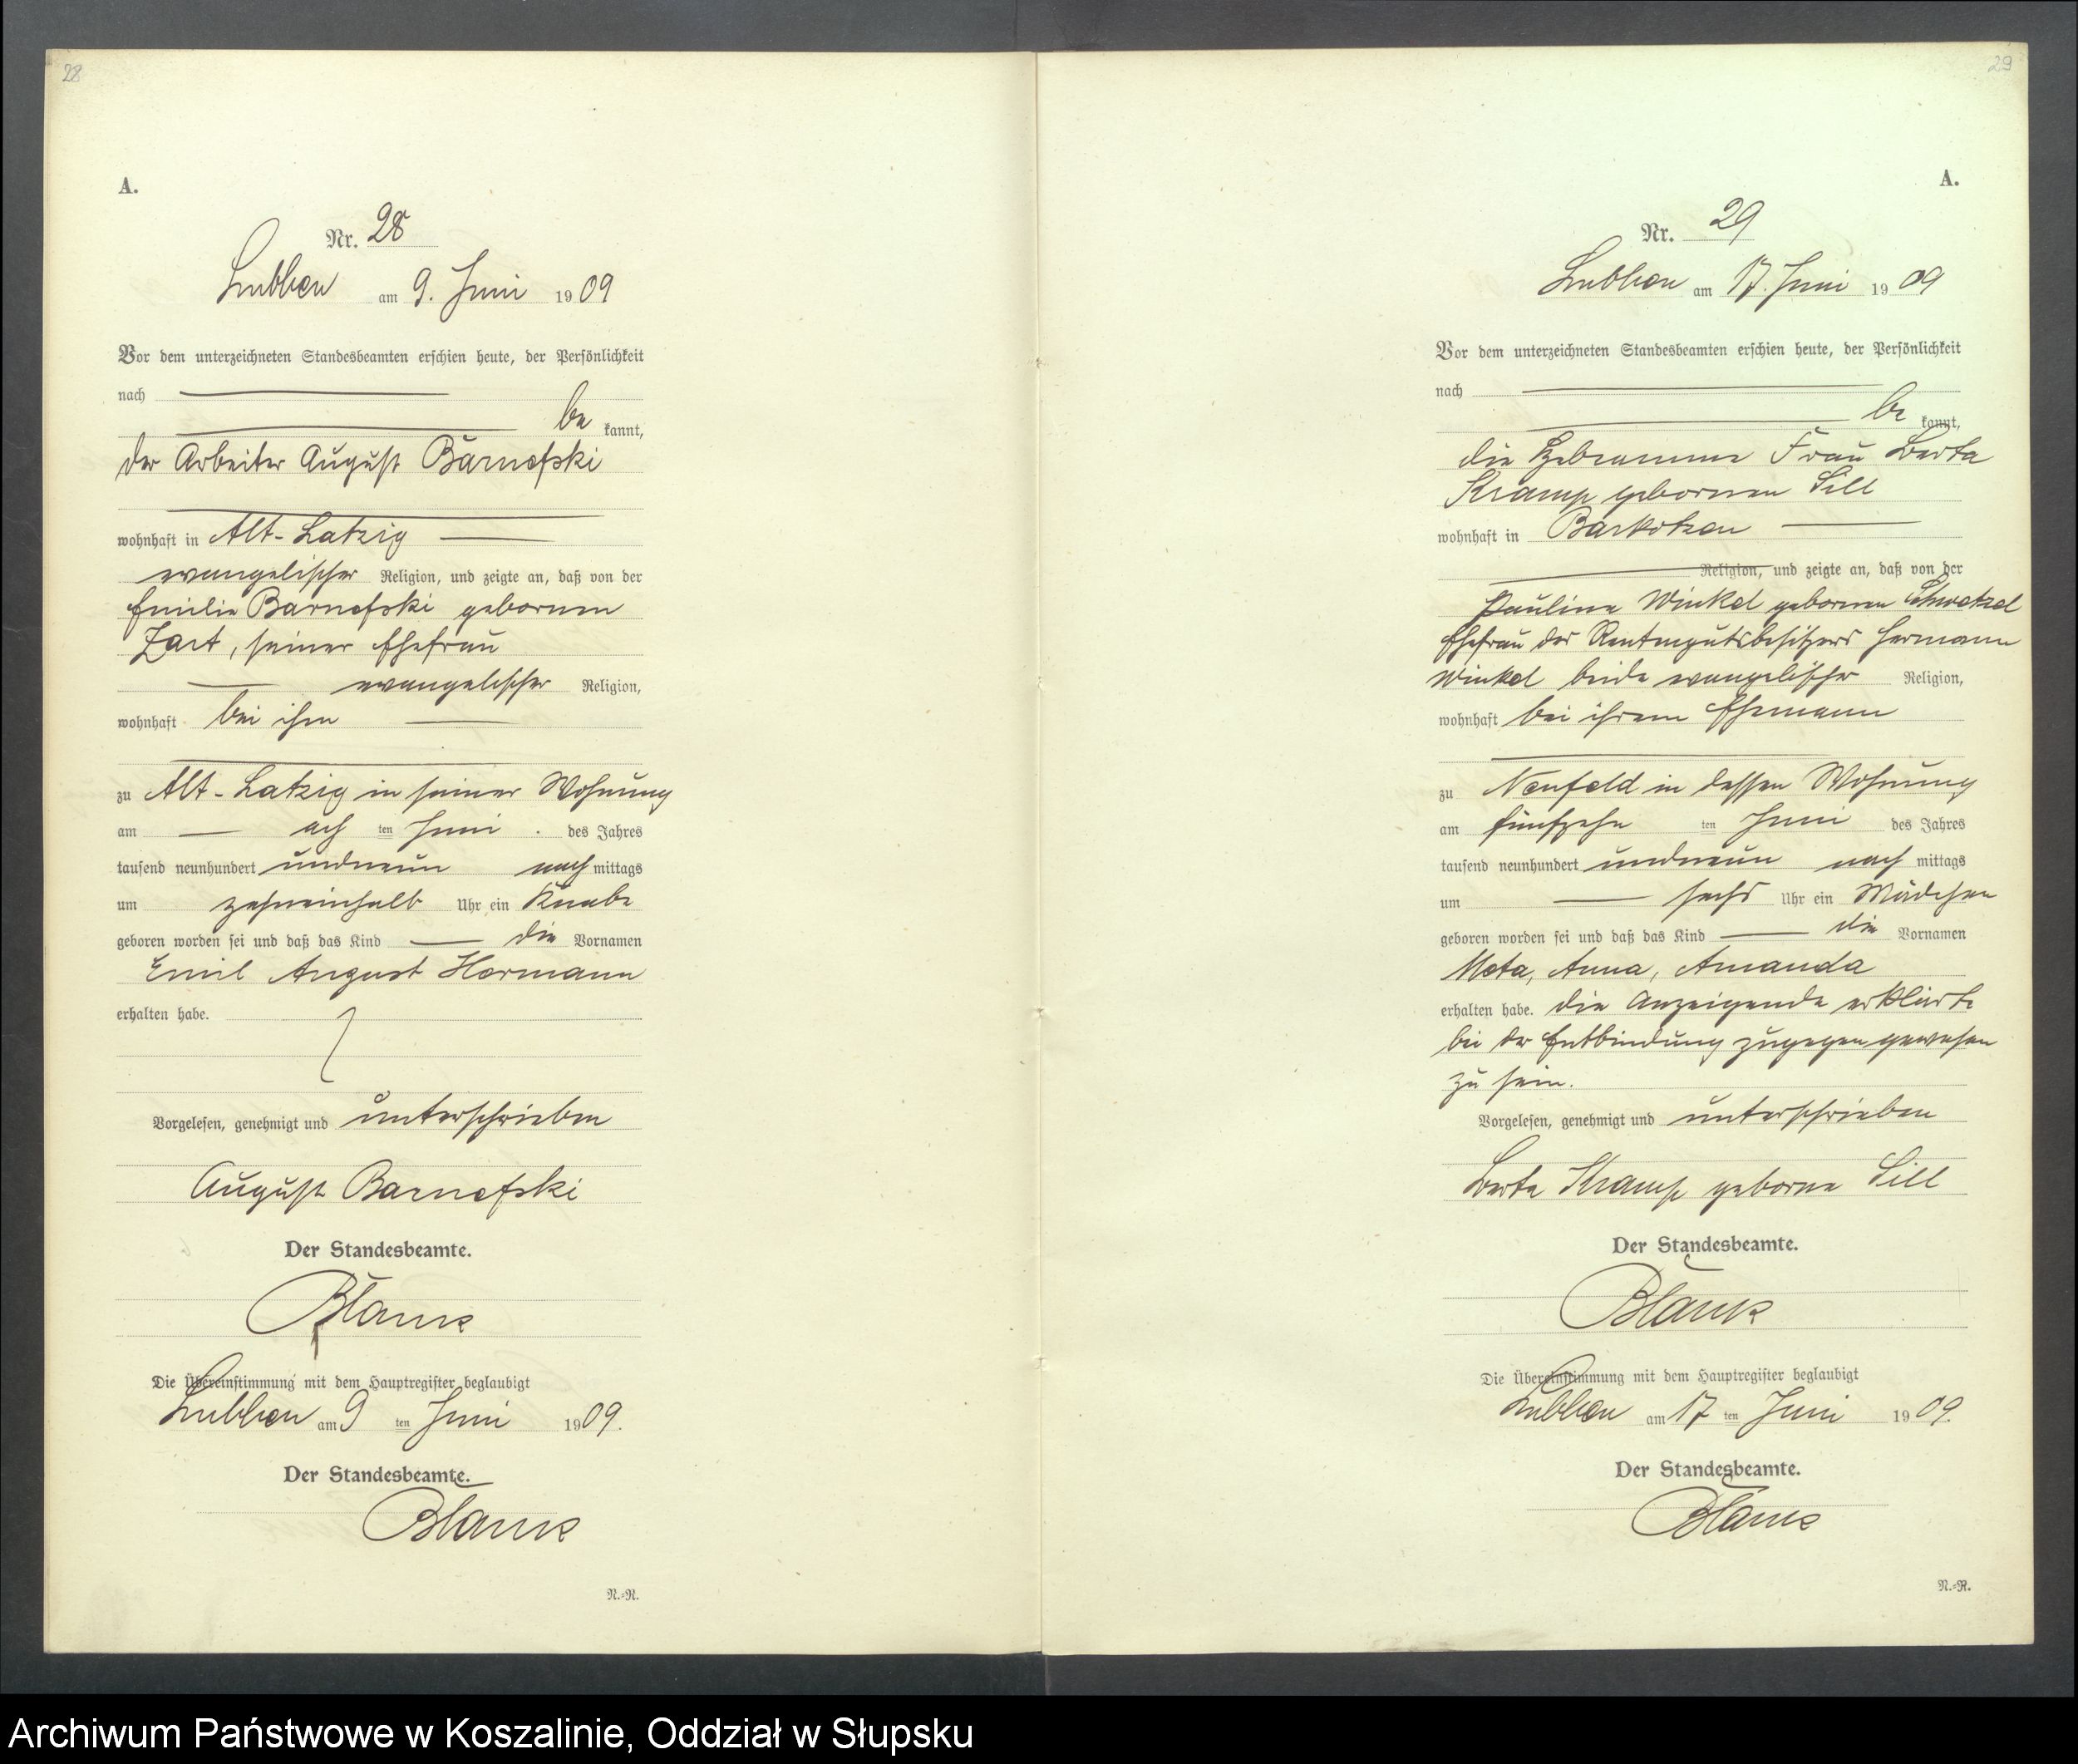 28
A.
Nr. 28
Lubben am 9. Juni 1909
Vor dem unterzeichneten Standesbeamten erschien heute, der Persönlichkeit
nach
be kannt,
der Arbeiter August Barnefski
wohnhaft in Alt-Latzig
evangelischer Religion, und zeigte an, daß von der
Emilie Barnefski gebornen
Zart, seiner Ehefrau
evangelischer Religion,
wohnhaft bei ihm
zu Alt-Latzig in seiner Wohnung
am ach ten Juni des Jahres
tausend neunhundert undneun nach mittags
um zehneinhalb Uhr ein Knabe
geboren worden sei und daß das Kind die Vornamen
Emil August Hermann
erhalten habe.
Vorgelesen, genehmigt und unterschrieben
August Barnefski
Der Standesbeamte.
Blank
Die Übereinstimmung mit dem Hauptregister beglaubigt
Lubben am 9 ten Juni 1909.
Der Standesbeamte.
Blank
N.=R.
29
A.
Nr. 29
Lubben am 17. Juni 1909
Vor dem unterzeichneten Standesbeamten erschien heute, der Persönlichkeit
nach
be kannt,
die Hebeamme Frau Berta
Kramp gebornen Sill
wohnhaft in Barkotzen
Religion, und zeigte an, daß von der
Pauline Winkel gebornen
Ehefrau des Rentengutsbesitzers Hermann
Winkel beide evangelischer Religion,
wohnhaft bei ihrem Ehemann
zu Neufeld in dessen Wohnung
am fünfzehn ten Juni des Jahres
tausend neunhundert undneun nach mittags
um sechs Uhr ein Mädchen
geboren worden sei und daß das Kind die Vornamen
Meta, Anna, Amanda
erhalten habe. Die Anzeigende erklärte
bei der Entbindung zugegen gewesen
zu sein.
Vorgelesen, genehmigt und unterschrieben
Berta Kramp geborne Sill
Der Standesbeamte.
Blank
Die Übereinstimmung mit dem Hauptregister beglaubigt
Lubben am 17 ten Juni 1909.
Der Standesbeamte.
Blank
N.=R.
Archiwum Państwowe w Koszalinie, Oddział w Słupsku